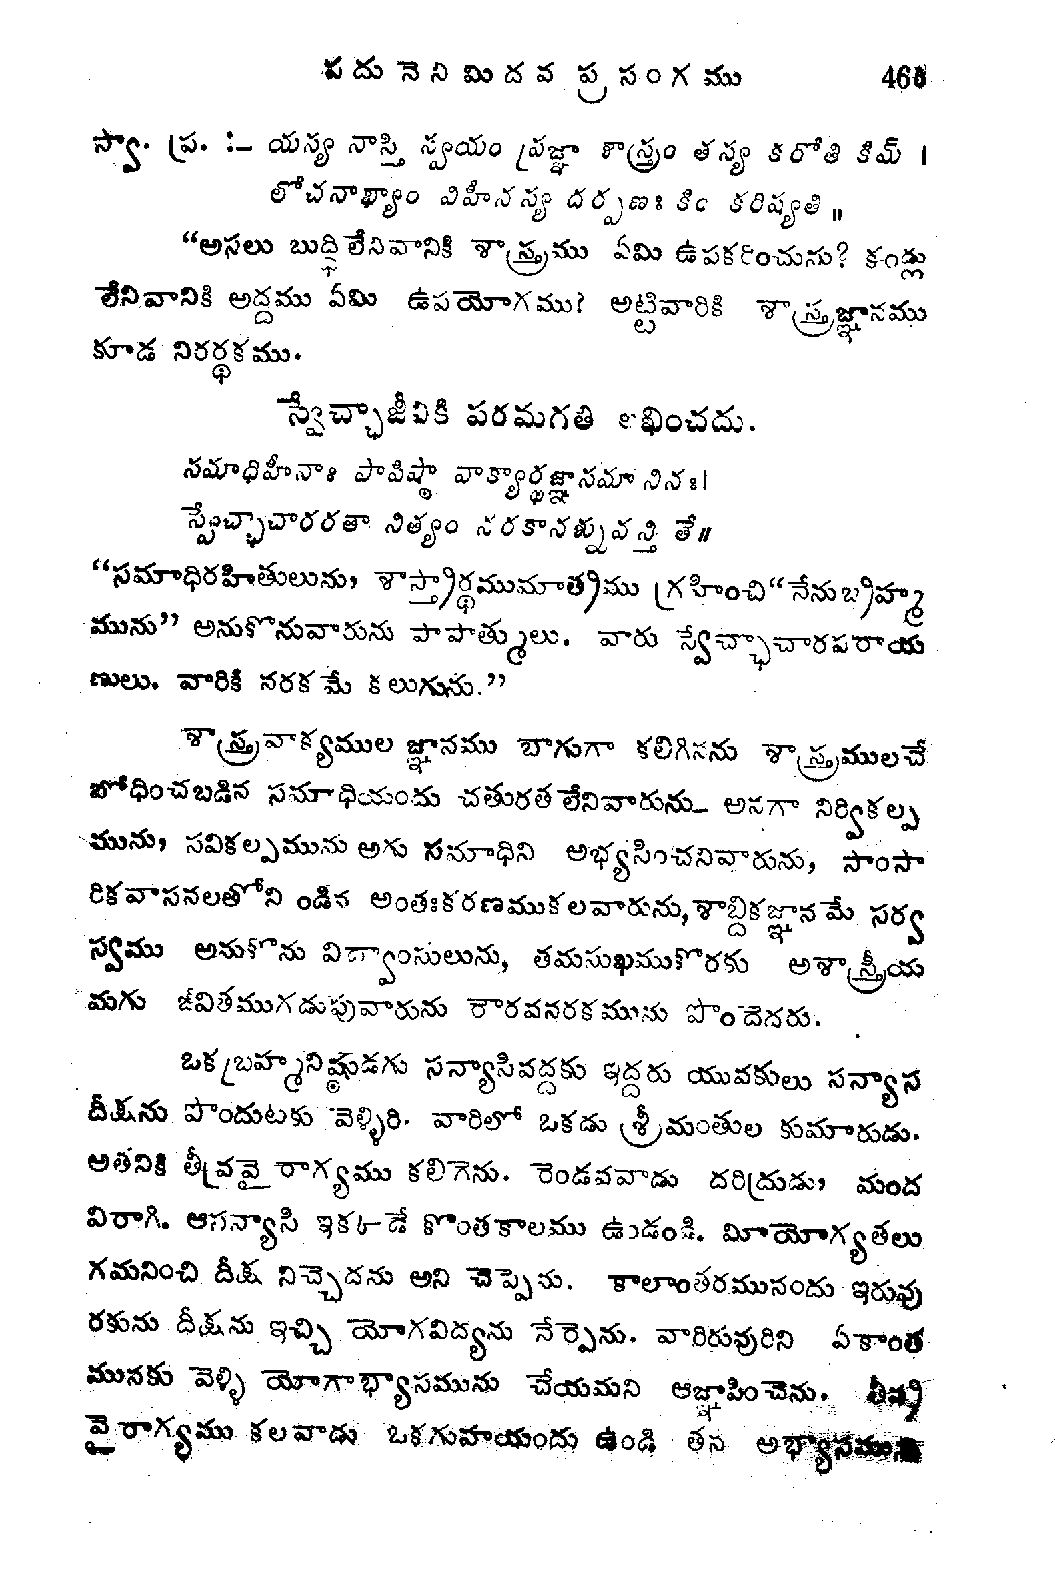 పదునెనిమిదవ ప్రసంగము
స్వా. ప్ర. :— యస్య నాస్తి స్వయం ప్రజ్ఞా శాస్త్రం తస్య కరోతి కిమ్ ।
లోచనాభ్యాం విహీనస్య దర్పణః కిం కరిష్యతి ॥
“అసలు బుద్ధిలేనివానికి శాస్త్రము ఏమి ఉపకరించును? కండ్లు
లేనివానికి అద్దము ఏమి ఉపయోగము? అట్టివారికి శాస్త్రజ్ఞానము
కూడ నిరర్థకము.
స్వేచ్ఛాజీవికి పరమగతి లభించదు.
సమాధిహీనాః పాపిష్ఠా వాక్యార్థజ్ఞానమానినః।
స్వేచ్ఛాచారరతా నిత్యం నరకానశ్నువన్తి తే॥
“సమాధిరహితులును, శాస్త్రార్థముమాత్రము గ్రహించి “నేనుబ్రహ్మ
మును” అనుకొనువారును పాపాత్ములు. వారు స్వేచ్ఛాచారపరాయ
ణులు. వారికి నరకమే కలుగును.”
శాస్త్రవాక్యముల జ్ఞానము బాగుగా కలిగినను శాస్త్రములచే
బోధించబడిన సమాధియందు చతురతలేనివారును— అనగా నిర్వికల్ప
మును, సవికల్పమును అగు సమాధిని అభ్యసించనివారును, సాంసా
రికవాసనలతోని ండిన అంతఃకరణముకలవారును, శాబ్దికజ్ఞానమే సర్వ
స్వము అనుకొను విద్వాంసులును, తమసుఖముకొరకు అశాస్త్రీయ
మగు జీవితముగడుపువారును రౌరవనరకమును పొందెదరు.
ఒకబ్రహ్మనిష్ఠుడగు సన్యాసివద్దకు ఇద్దరు యువకులు సన్యాస
దీక్షను పొందుటకు వెళ్ళిరి. వారిలో ఒకడు శ్రీమంతుల కుమారుడు.
అతనికి తీవ్రవైరాగ్యము కలిగెను. రెండవవాడు దరిద్రుడు, మంద
విరాగి. ఆసన్యాసి ఇక్కడే కొంతకాలము ఉండండి. మీయోగ్యతలు
గమనించి దీక్ష నిచ్చెదను అని చెప్పెను. కాలాంతరమునందు ఇరువు
రకును దీక్షను ఇచ్చి యోగవిద్యను నేర్పెను. వారిరువురిని ఏకాంత
మునకు వెళ్ళి యోగాభ్యాసమును చేయమని ఆజ్ఞాపించెను. తీవ్ర
వైరాగ్యము కలవాడు ఒకగుహయందు ఉండి తన అభ్యాసమును